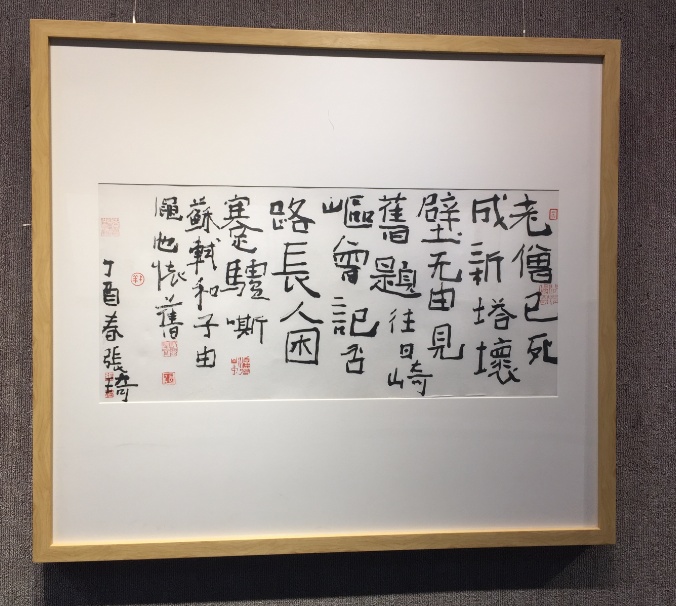 老僧已死
成新塔壞
壁无由見
舊題往日崎
嶇曾記否
路長人困
蹇驢嘶
蘇軾和子由
澠池懷舊
丁酉春張琦